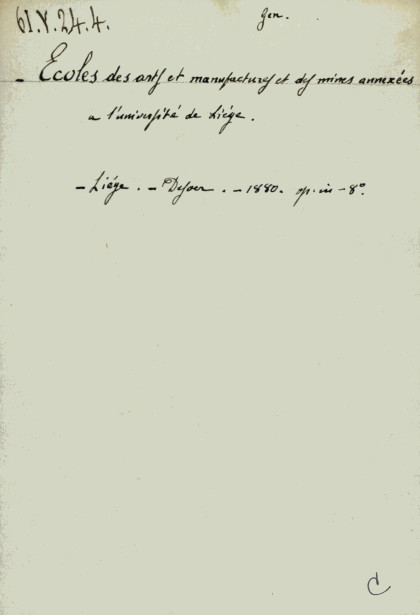 61.V.24.4.
Gen.
- Ecoles des arts et manufactures et des mines annexées
a l'université de Liége.
- Liége. - Desoer. - 1880. op. in-8°.
C